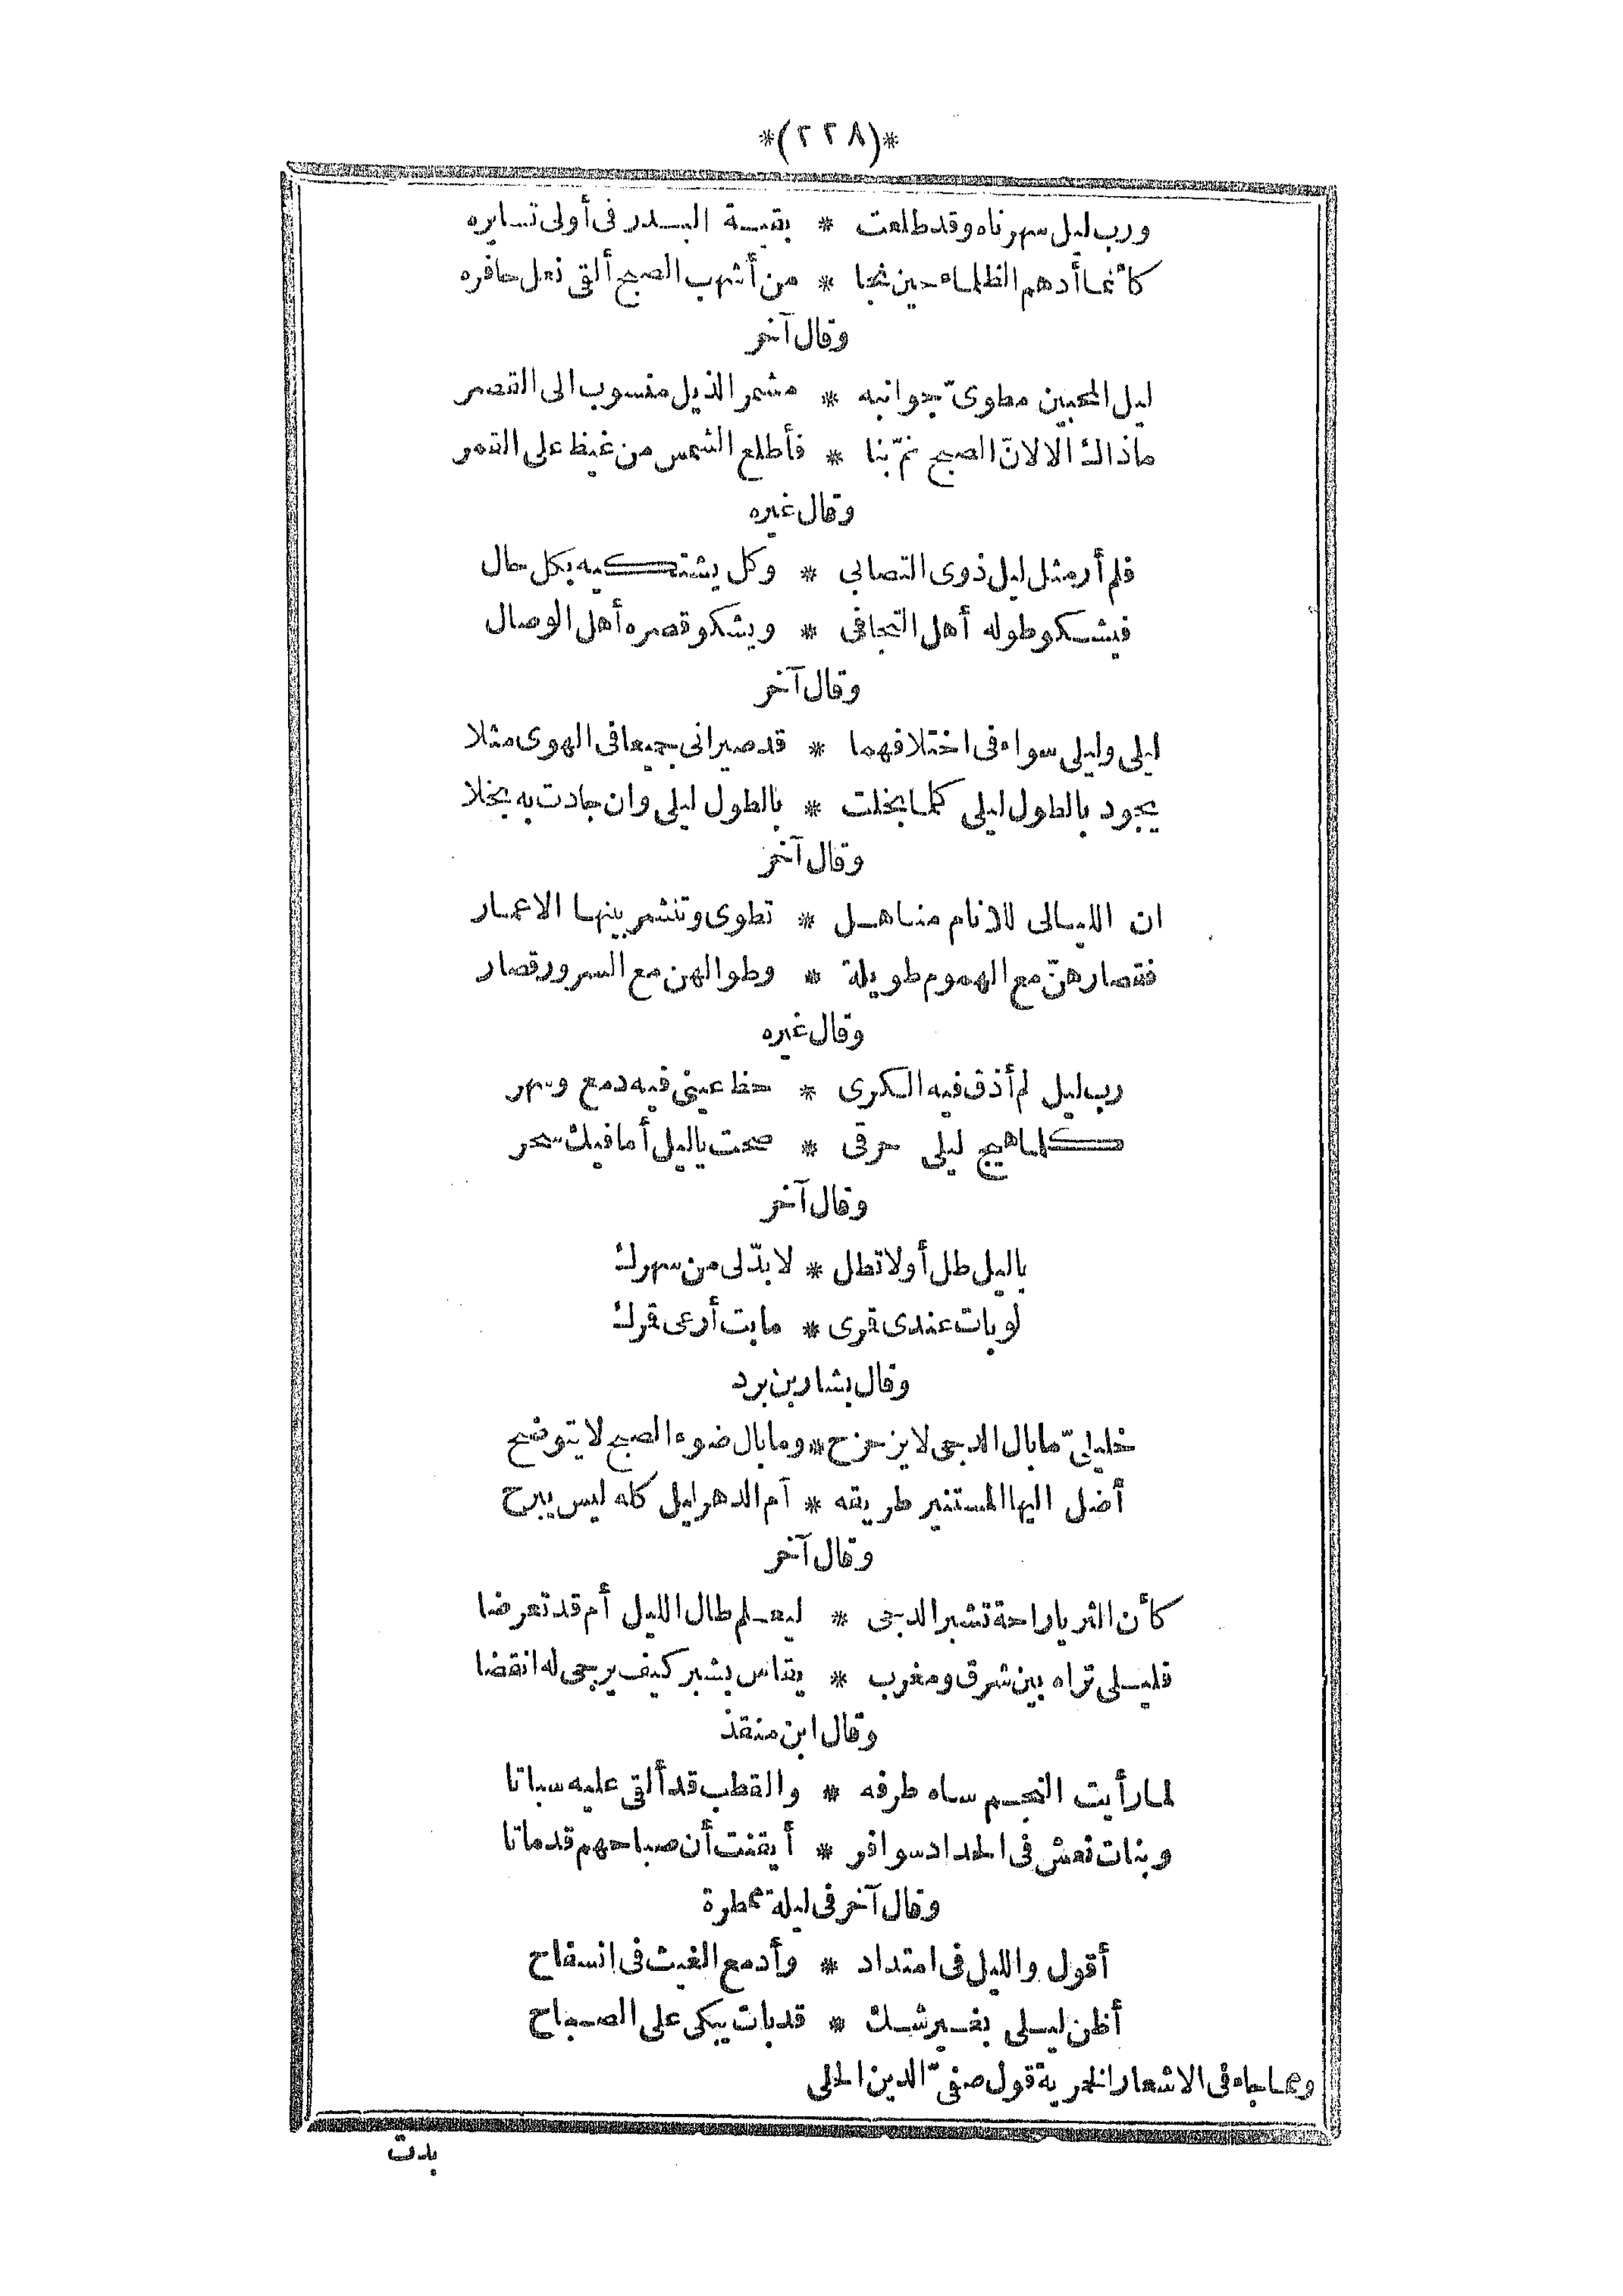 *(٢٢٨)*
ورب ليل سهرناه وقد طلعت * بقية البدر فى أولى تسايره
كأنما أدهم الظلماء حين نجا * من أشهب الصبح ألقى نعل حافره
وقال آخر
ليل المحبين مطوىّ جوانبه * مشمر الذيل منسوب الى القصر
ماذاك الا لانّ الصبح نمّ بنا * فأطلع الشمس من غيظ على القمر
وقال غيره
فلم أر مثل ليل ذوى التصابى * وكل يشتكيه بكل حال
فيشكو طوله أهل التجافى * ويشكو قصره أهل الوصال
وقال آخر
ليلى وليلى سواء فى اختلافهما * قد صيرانى جميعا فى الهوى مثلا
يجود بالطول ليلى كلما بخلت * بالطول ليلى وان جادت به بخلا
وقال آخر
ان الليالى للانام مناهل * تطوى وتنشر بينها الاعمار
فقصارهنّ مع الهموم طويلة * وطوالهن مع السرور قصار
وقال غيره
رب ليل لم أذق فيه الكرى * حظ عينى فيه دمع وسهر
كلما هيج ليلى حرقى * صحت ياليل أما فيك سحر
وقال آخر
ياليل طل أولا تطل * لا بدّ لى من سهرك
لو بات عندى قمرى * ما بت أرعى قمرك
وقال بشار بن برد
خليلىّ ما بال الدجى لا يزحزح * وما بال ضوء الصبح لا يتوضح
أضل اليها المستنير طريقه * أم الدهر ليل كله ليس يبرح
وقال آخر
كأن الثريا راحة تشبر الدجى * ليعلم طال الليل أم قد تعرضا
فليلى تراه بين شرق ومغرب * يقاس بشبر كيف يرجى له انقضا
وقال ابن منقذ
لما رأيت النجم ساه طرفه * والقطب قد ألقى عليه سباتا
وبنات نعش فى الحداد سوافر * أيقنت أن صباحهم قد ماتا
وقال آخر فى ليلة ممطرة
أقول والليل فى امتداد * وأدمع الغيث فى انسفاح
أظن ليلى بغير شك * قد بات يبكى على الصباح
ومما جاء فى الاشعار الخمرية قول صفىّ الدين الحلى
بدت